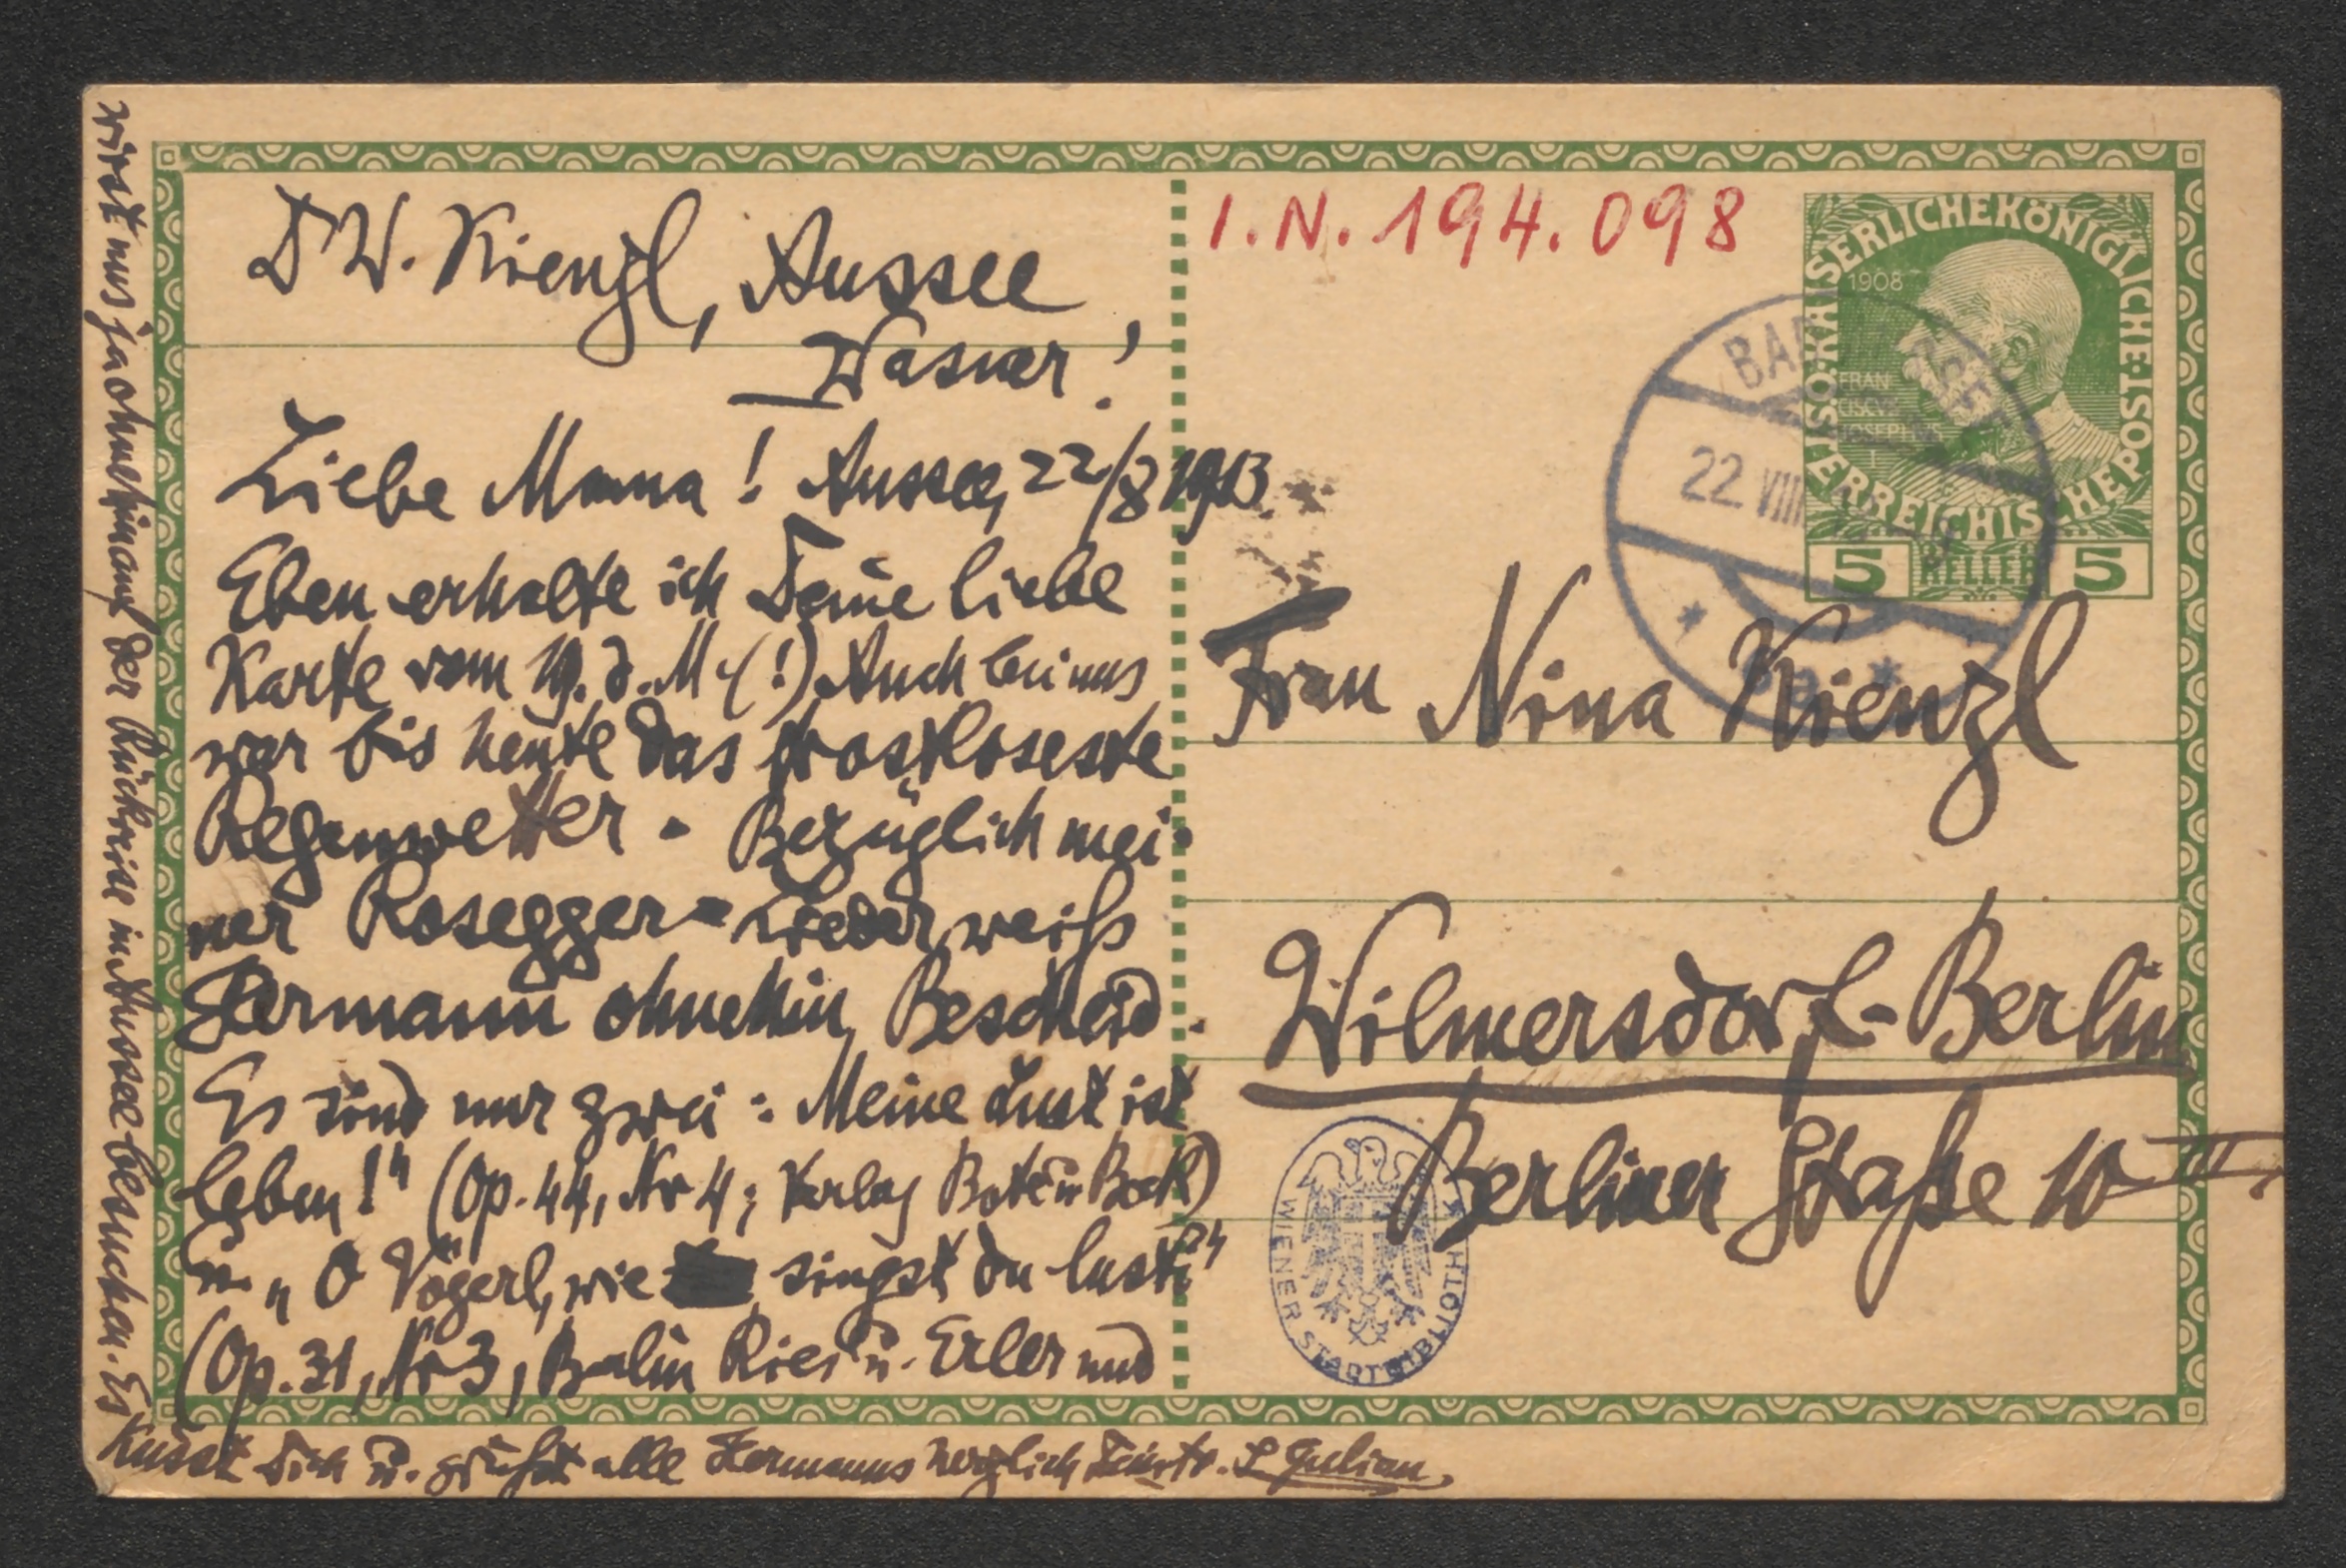 Dr W. Kienzl, Aussee,
Wasner!
Liebe Mama! Aussee, 22/8 1913.
Eben erhalte ich Deine liebe
Karte vom 19. d. M. (!) Auch bei uns
war bis heute das trostloseste
Regenwetter. Bezüglich mei-
ner Rosegger-Lieder weiß
Hermann ohnehin Bescheid.
Es sind nur zwei: Meine Lust ist
leben!" (Op. 44, Nr 4; Verlag Bote u Bock)
u. „O Vögerl, wie singst du lusti"
(Op. 31, Nr 3, Berlin Ries u. Erler und
wirst uns ja ohnehin auf der Rückreise in Aussee besuchen. Es
küsst Dich u. grüßt alle Hermanns herzlich Dein tr. S. Julian.
I.N. 194.098
KAISERLICHE KÖNIGLICHE
ÖSTERREICHISCHE POST
1908
FRAN
CISCVS
JOSEPHUS
I
5 HELLER 5
BAD AUSSEE
22 VIII
Frau Nina Kienzl
Wilmersdorf-Berlin
Berliner Straße 10 III.
WIENER STADTBIBLIOTHEK